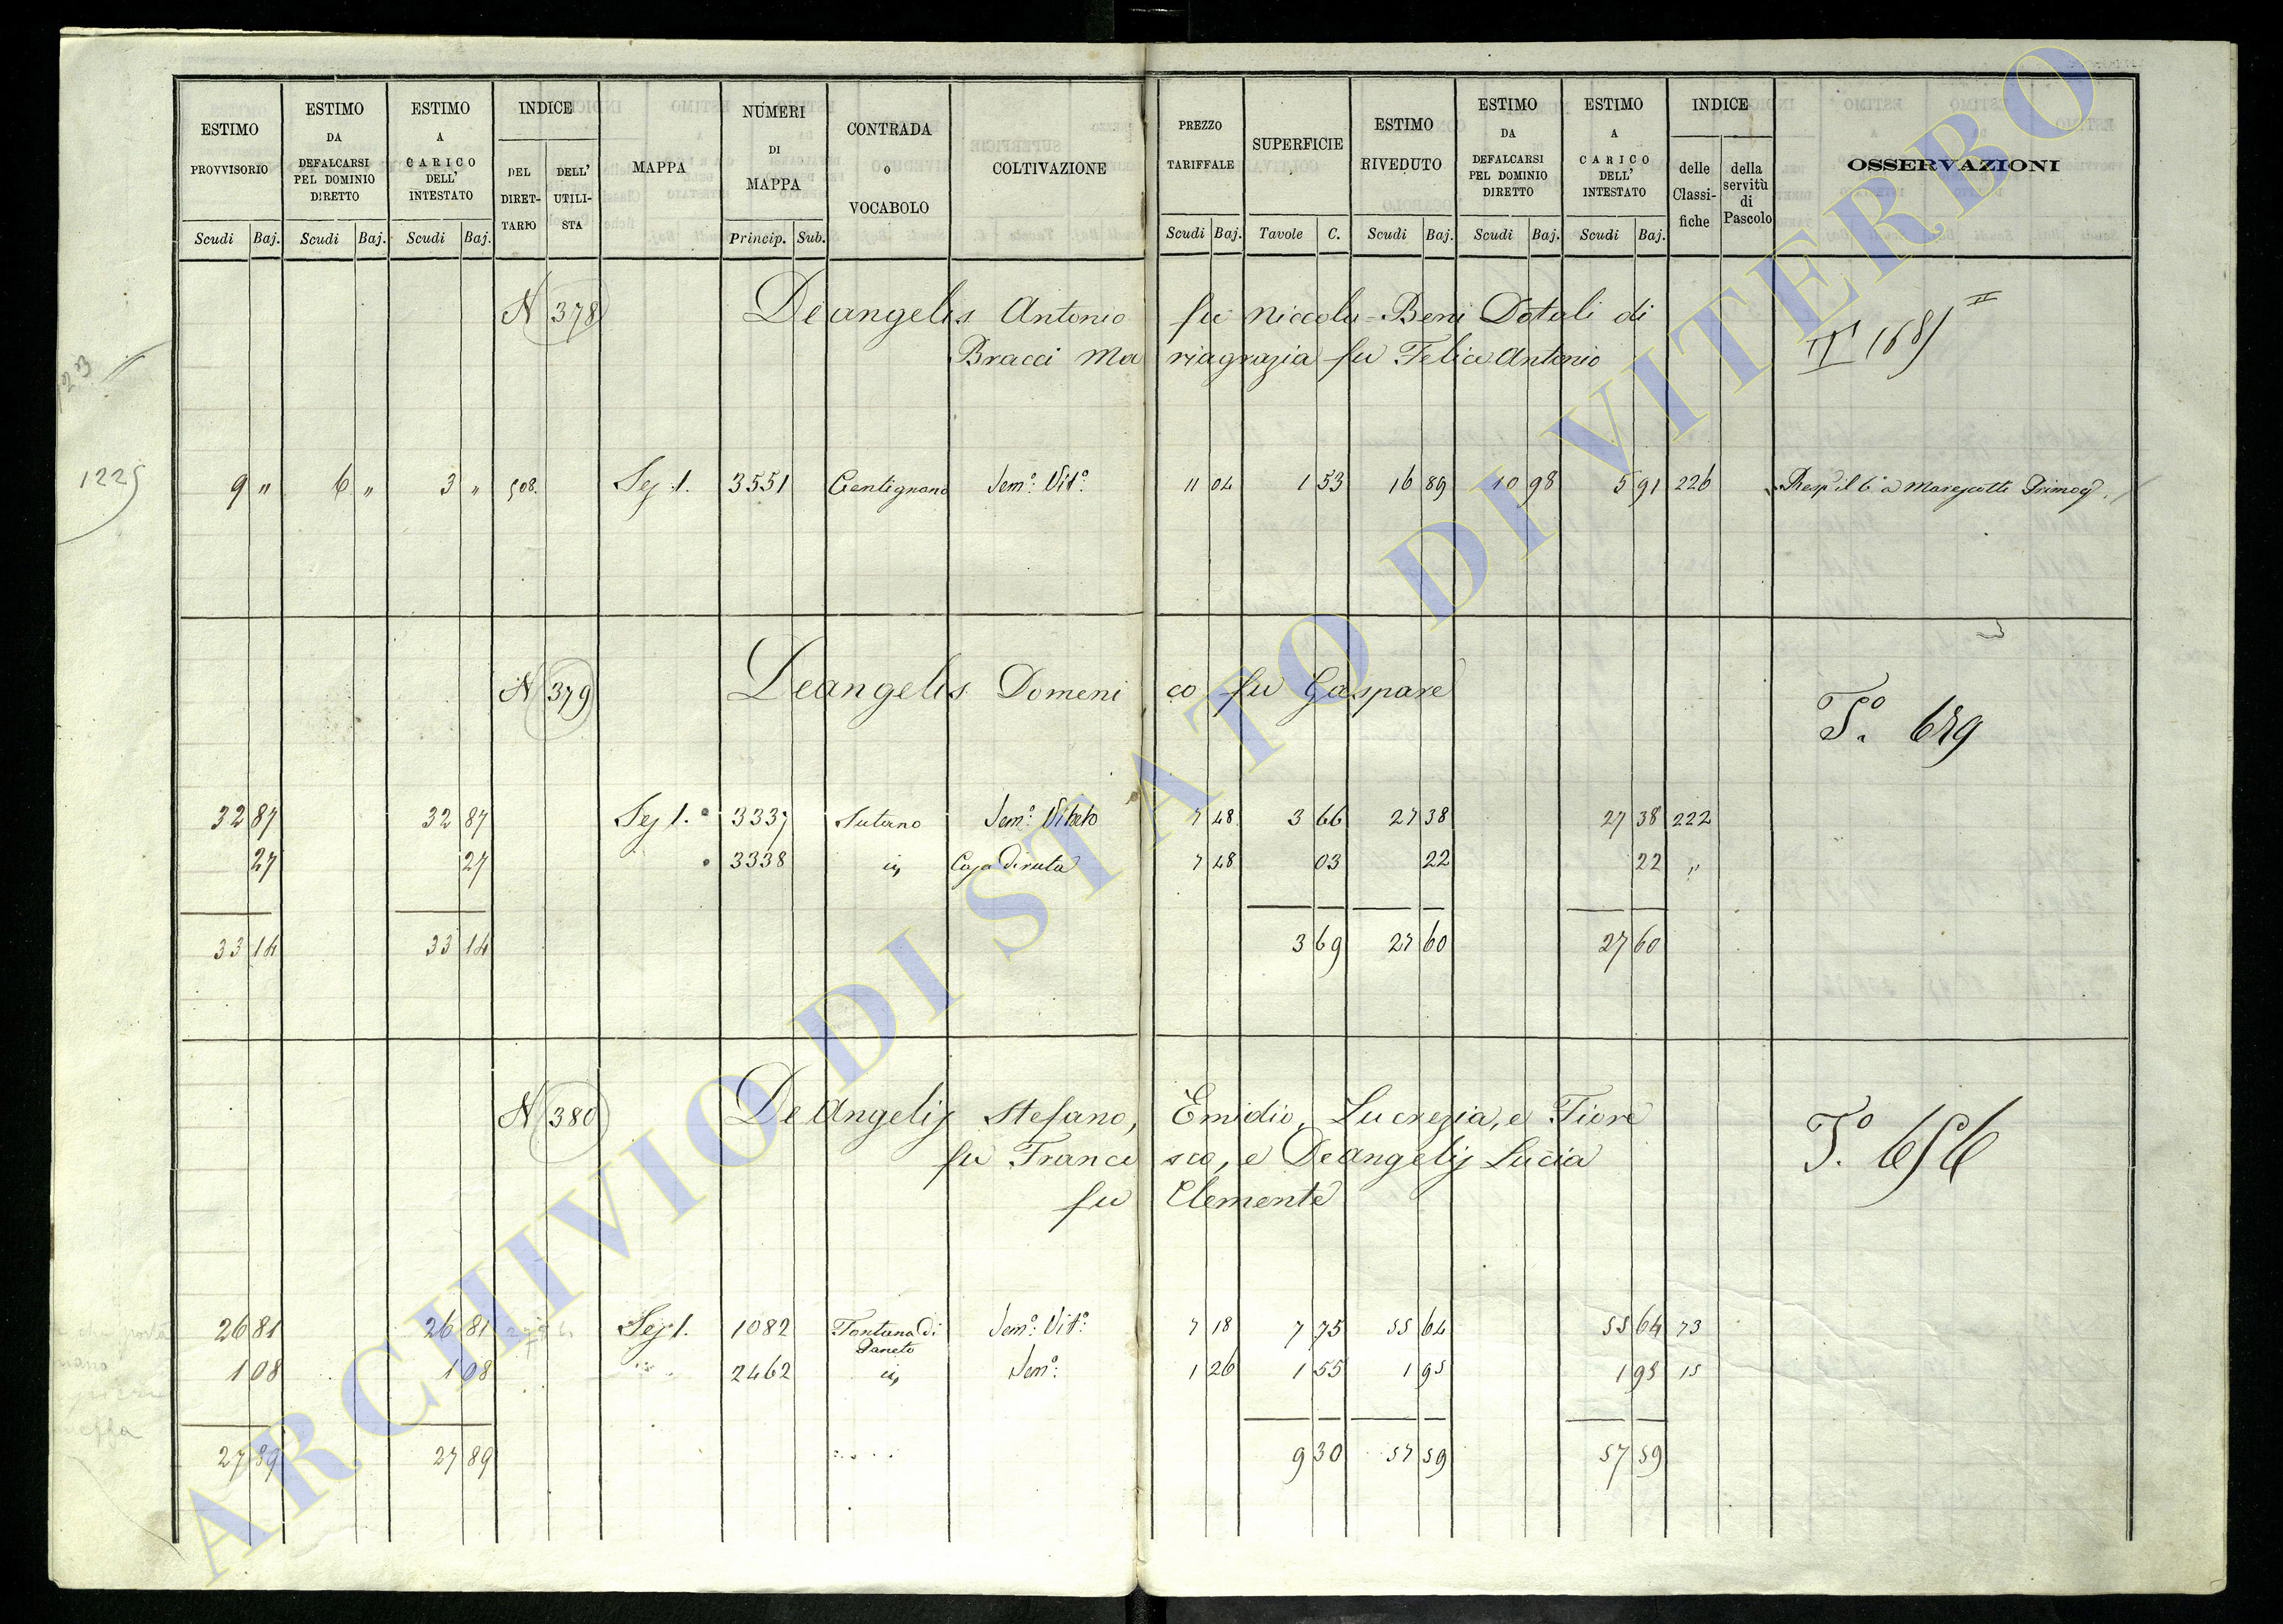 ESTIMO PROVVISORIO | ESTIMO DA DEFALCARSI PEL DOMINIO DIRETTO | ESTIMO A CARICO DELL' INTESTATO | INDICE DEL DIRETTARIO | DELL' UTILISTA | MAPPA | NUMERI DI MAPPA | CONTRADA O VOCABOLO | COLTIVAZIONE | PREZZO TARIFFALE | SUPERFICIE | ESTIMO RIVEDUTO | ESTIMO DA DEFALCARSI PEL DOMINIO DIRETTO | ESTIMO A CARICO DELL' INTESTATO | INDICE delle Classifiche | della servitù di Pascolo | OSSERVAZIONI
Scudi Baj. | Scudi Baj. | Scudi Baj. | Princip. Sub. | Scudi Baj. | Tavole C. | Scudi Baj. | Scudi Baj. | Scudi Baj.
N 378 Deangelis Antonio fu Niccola = Beni Dotali di
Bracci Mariagrazia fu Felice Antonio
123
1225
9 " | 6 " | 3 " | 508. | Sez 1. | 3551 | Centignano | Sem.º Vit.º | 11 04 | 1 53 | 16 89 | 10 98 | 5 91 | 226 | Resp il 6º a Marescotti Primog.
N 379 Deangelis Domenico fu Gaspare
Tº.
32 87 | 32 87 | Sez 1. | 3337 | Sutorno | Sem.º Vitato | 7 48 | 3 66 | 27 38 | 27 38 | 222
27 | 27 | 3338 | id | Casa Diruta | 7 48 | 03 | 22 | 22 | "
33 14 | 33 14 | 3 69 | 27 60 | 27 60
N 380 DeAngelis Stefano, Emidio, Lucrezia, e Fiore
fu Francesco, e Deangelis Lucia
fu Clemente
Tº. 656
26 81 | 26 81 | Sez 1. | 1082 | Fontana di Paneto | Sem.º Vit.º | 7 18 | 7 75 | 55 64 | 55 64 | 73
1 08 | 1 08 | 2462 | id | Sem.º | 1 26 | 1 55 | 1 95 | 1 95 | 15
27 89 | 27 89 | 9 30 | 57 59 | 57 59
ARCHIVIO DI STATO DI VITERBO